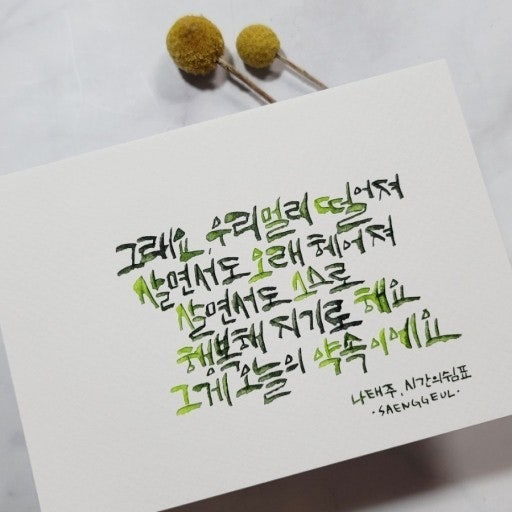 그래요, 우리 멀리 떨어져
살면서도 오래 헤어져
살면서도 스스로
행복해 지기로 해요
그게 오늘의 약속이에요
나태주, 시간의쉼표
·SAENGGEUL·